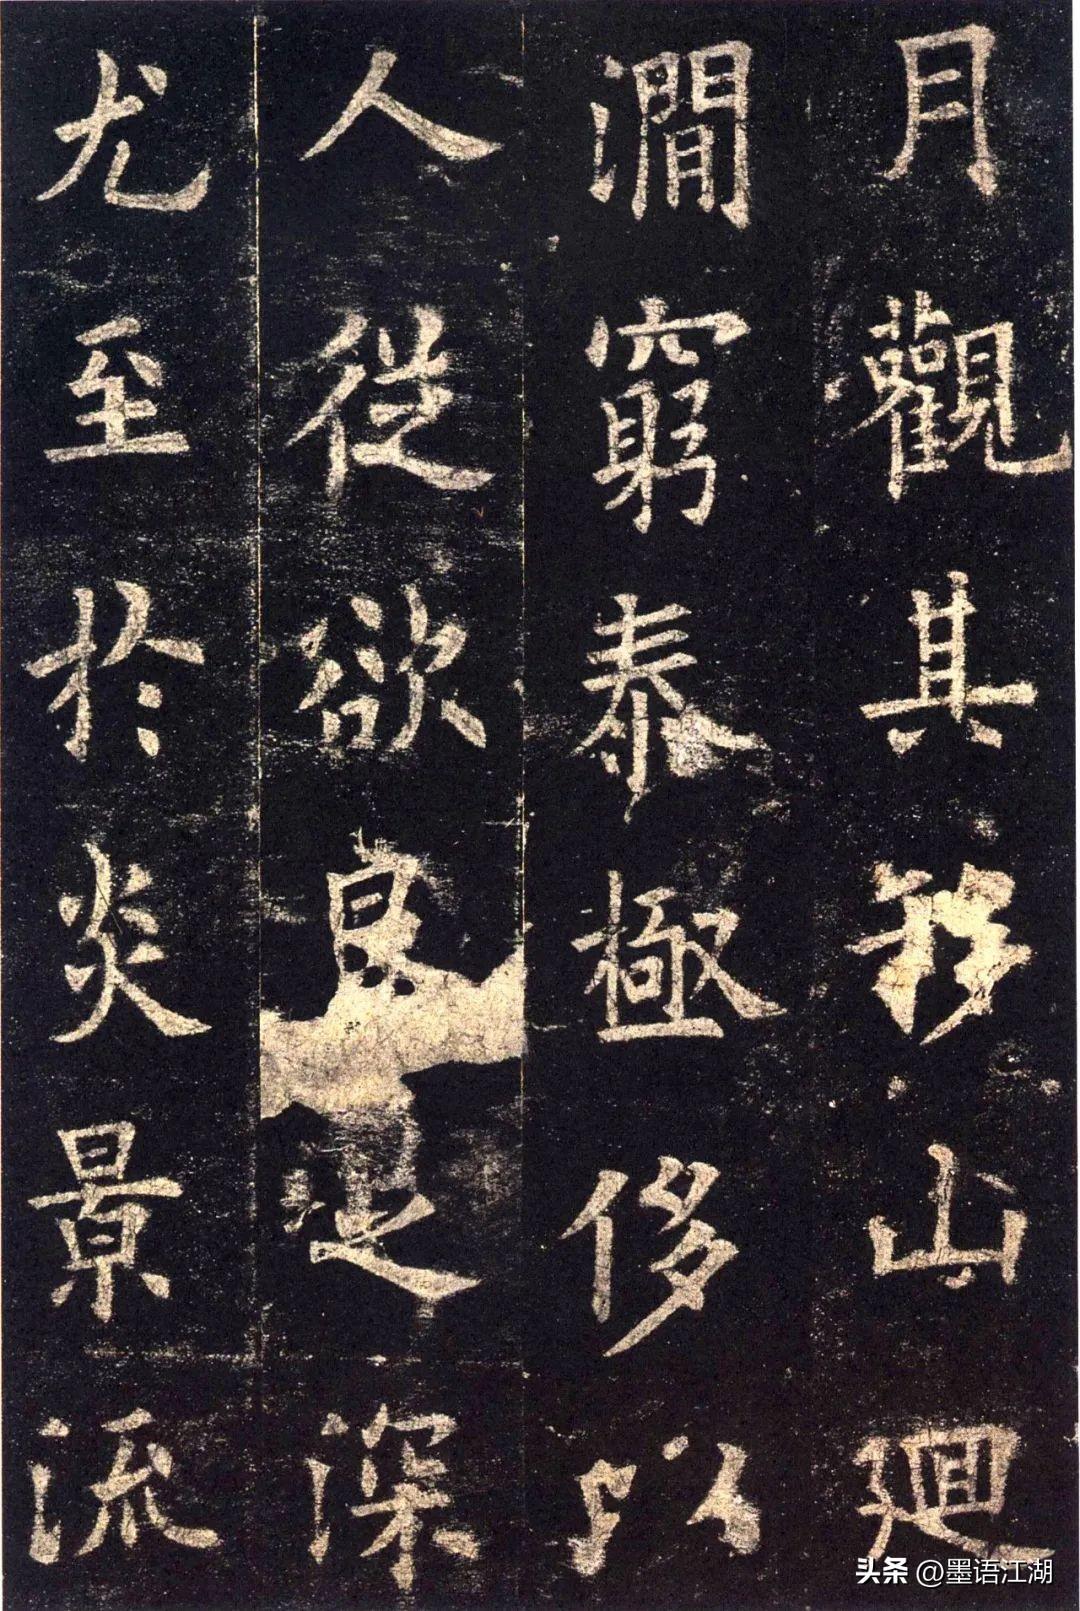 月觀其移山廻
澗窮泰極侈以
人從欲良足深
尤至於炎景流
头条 @墨语江湖